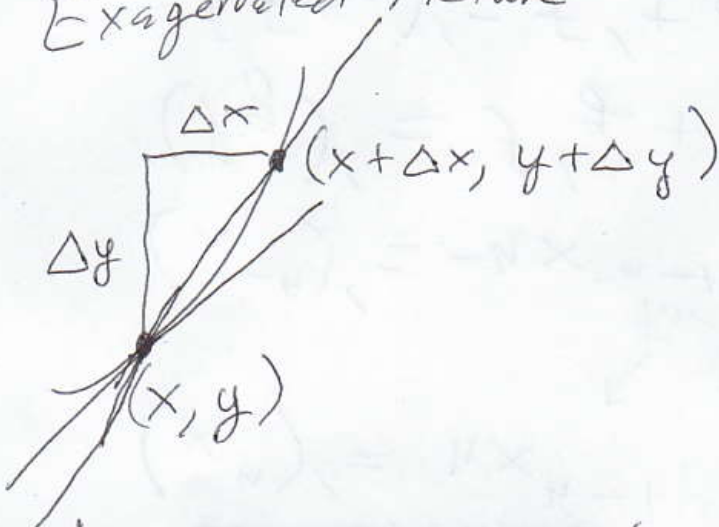 Exagerated Picture
Δx
(x+Δx, y+Δy)
Δy
(x, y)